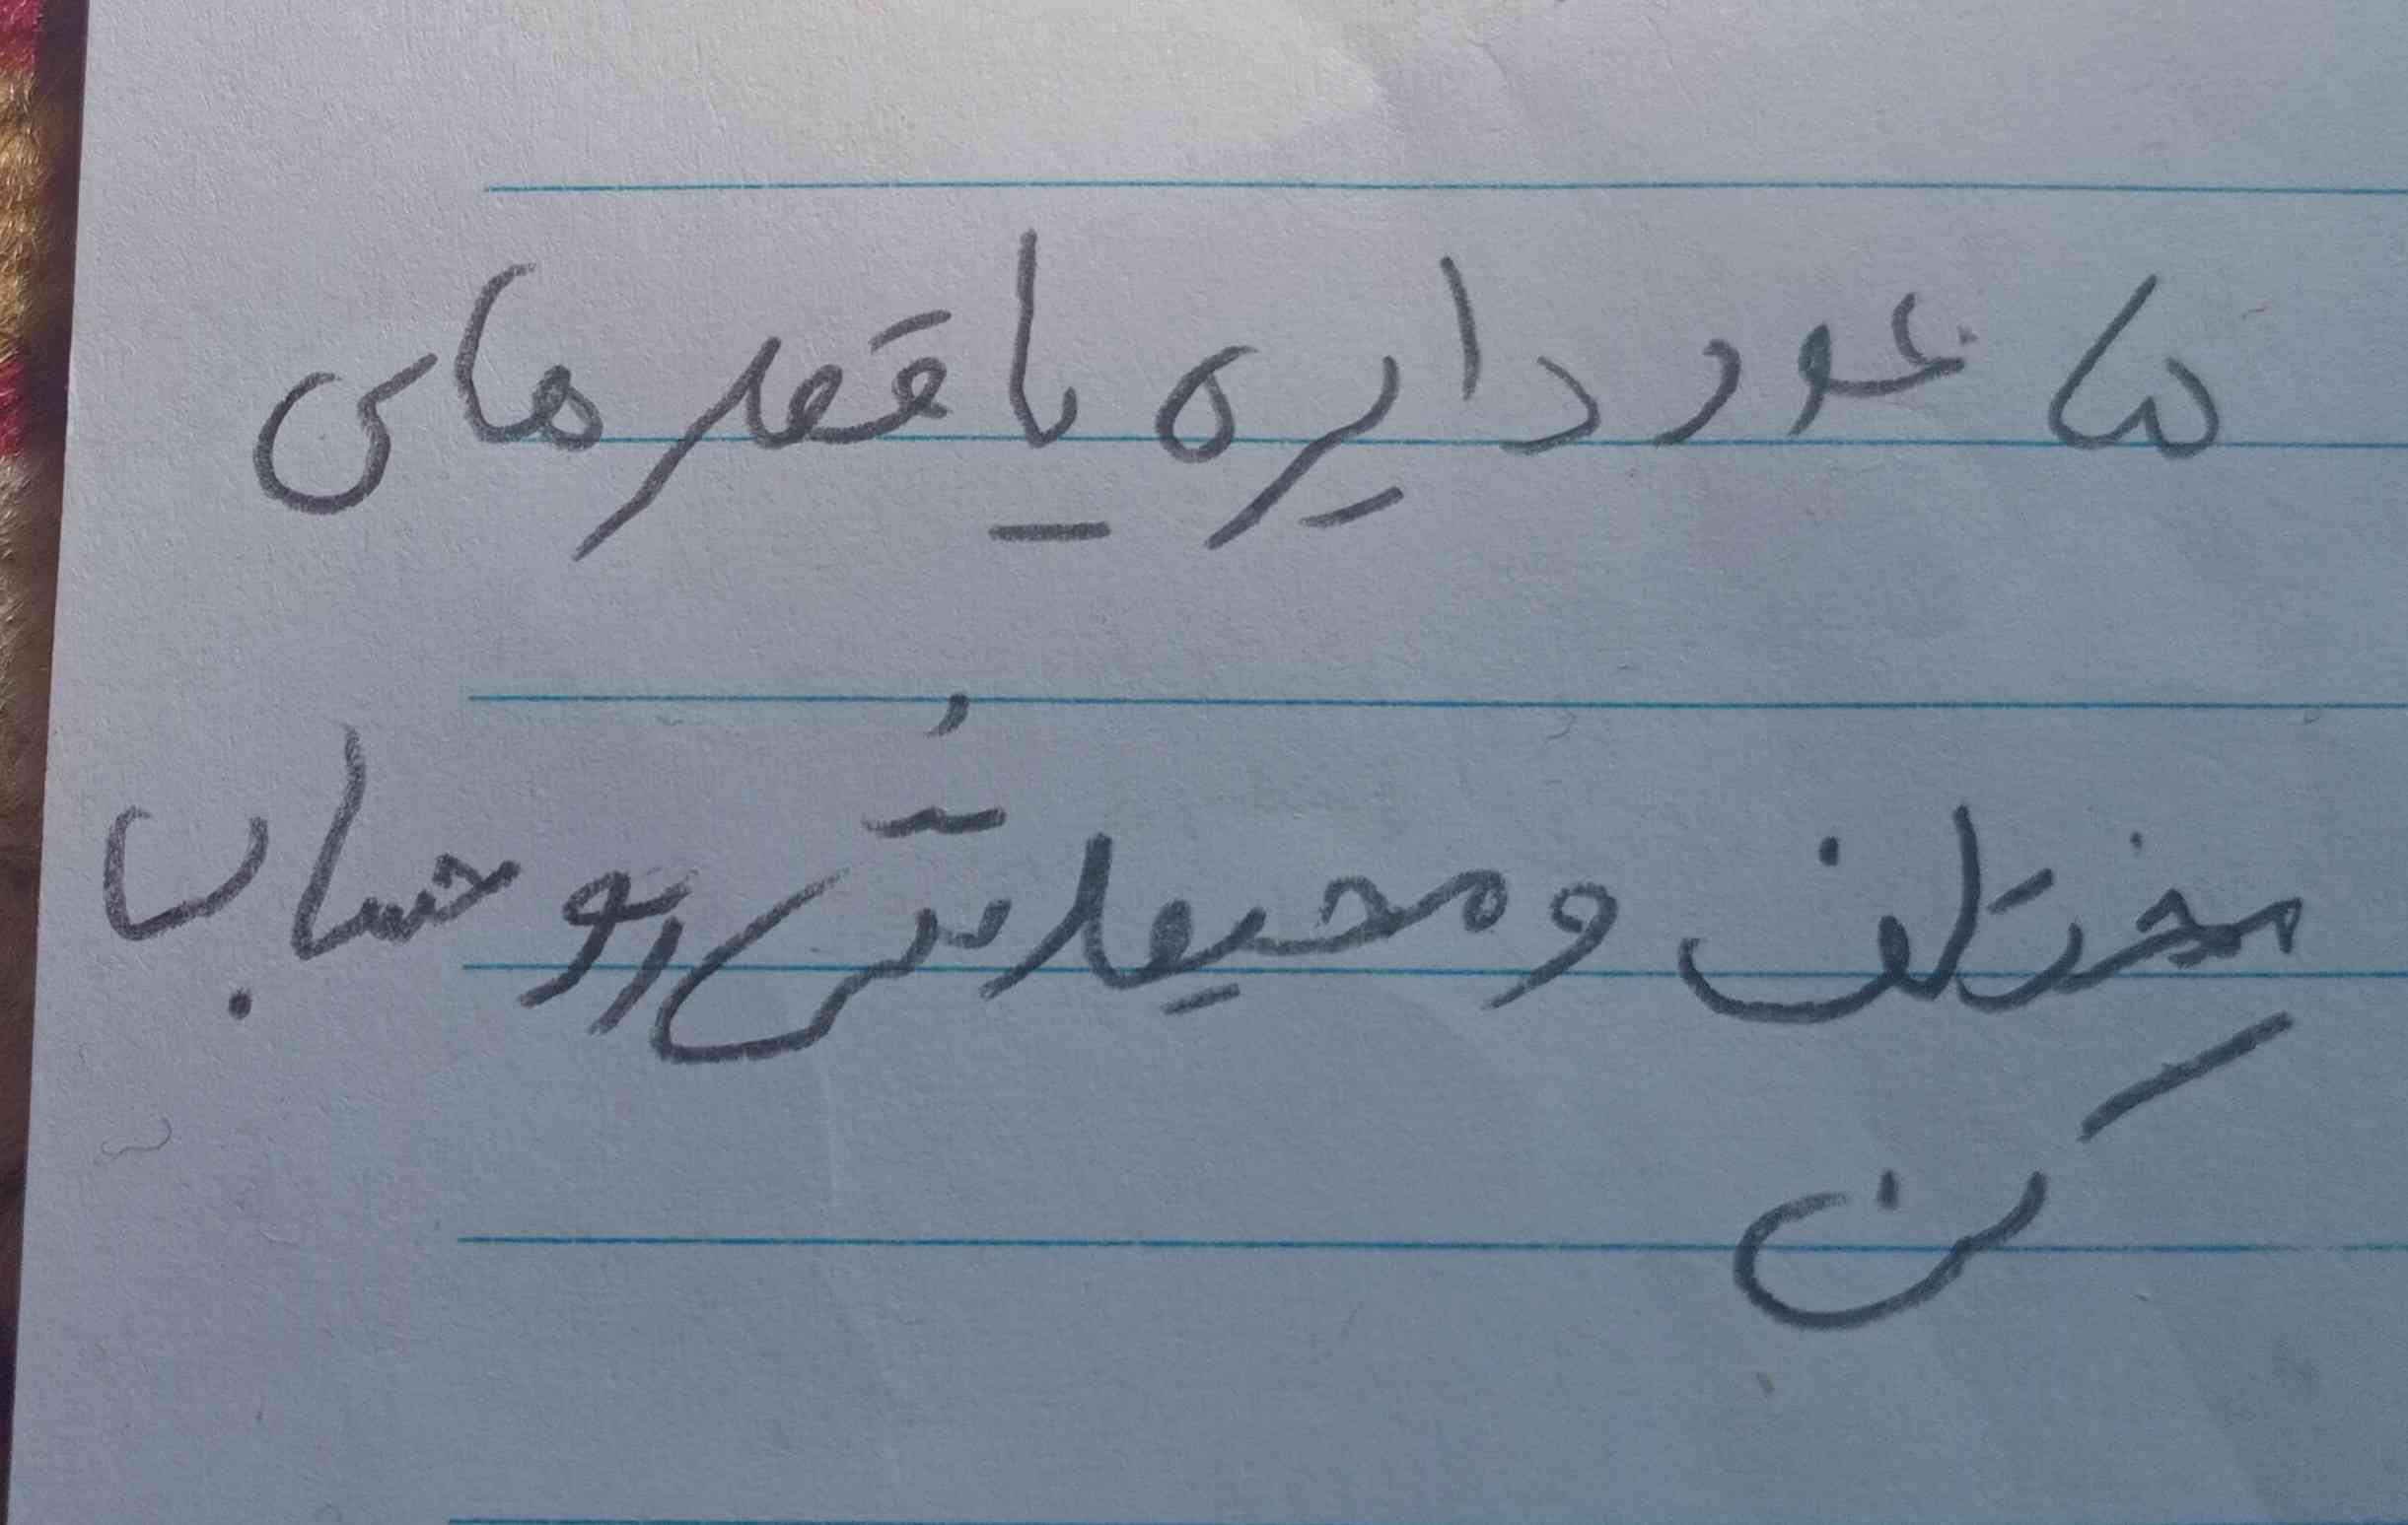 ۵ عدد دایره با قطرهای
مختلف و محیطاش رو حساب
کن